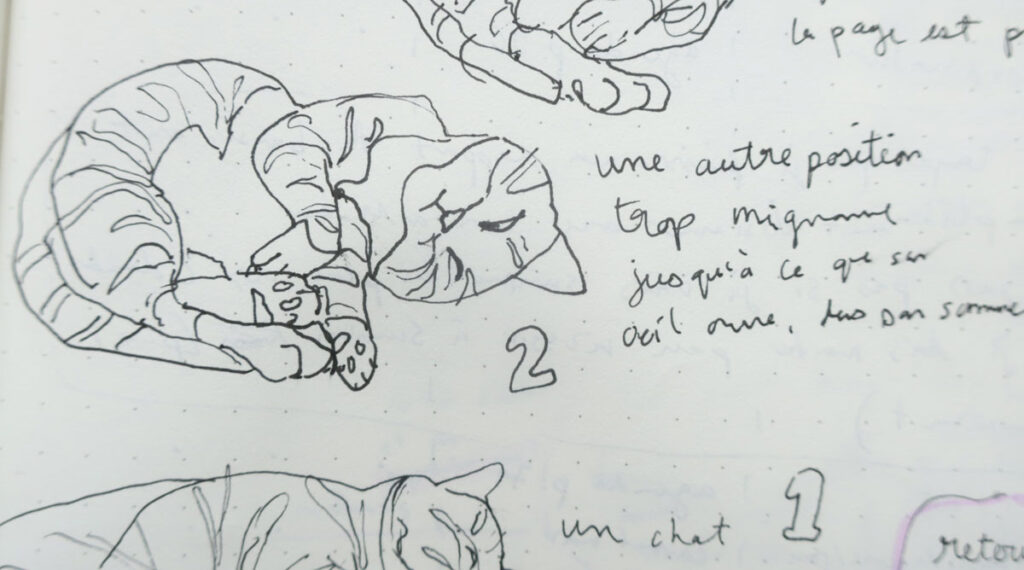 la page est p
une autre position
trop mignonne
jusqu'à ce que son
œil ouvre, dans son somme
2
un chat
1
retou